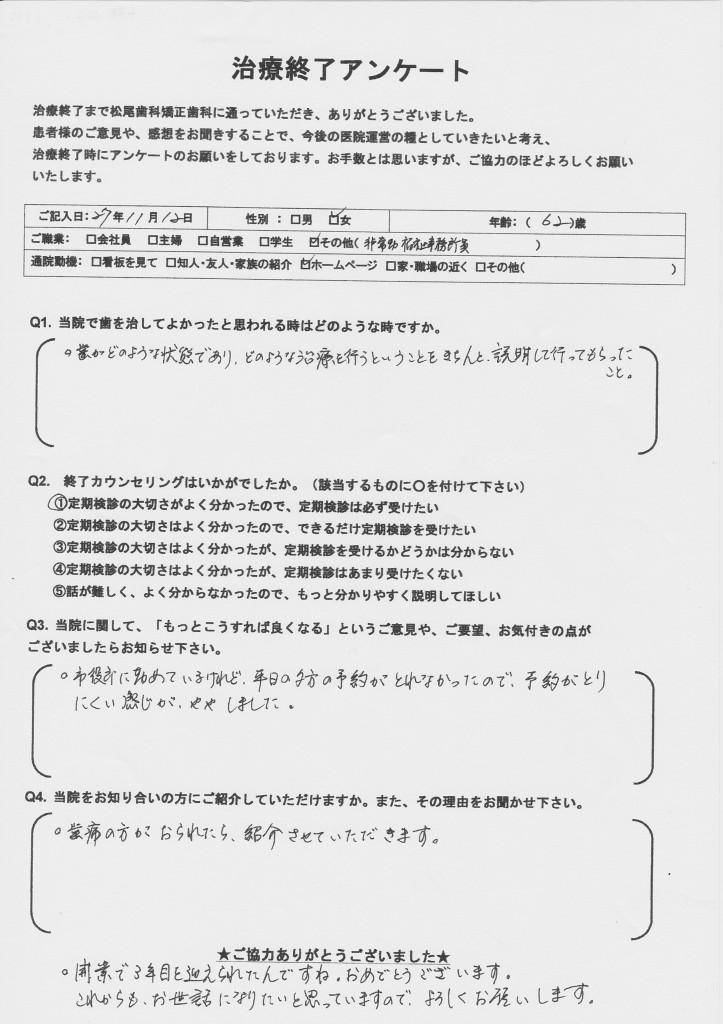 治療終了アンケート
治療終了まで松尾歯科矯正歯科に通っていただき、ありがとうございました。
患者様のご意見や、感想をお聞きすることで、今後の医院運営の糧としていきたいと考え、
治療終了時にアンケートのお願いをしております。お手数とは思いますが、ご協力のほどよろしくお願い
いたします。
ご記入日：27年11月12日 性別 ： □男 ☑女 年齢：（ 62 ）歳
ご職業： □会社員 □主婦 □自営業 □学生 ☑その他（ 非常勤 福祉事務所員 ）
通院動機： □看板を見て □知人・友人・家族の紹介 ☑ホームページ □家・職場の近く □その他（ ）
Q1. 当院で歯を治してよかったと思われる時はどのような時ですか。
○歯がどのような状態であり、どのような治療を行うということをきちんと、説明して行ってもらった
こと。
Q2. 終了カウンセリングはいかがでしたか。（該当するものに〇を付けて下さい）
①定期検診の大切さがよく分かったので、定期検診は必ず受けたい
②定期検診の大切さはよく分かったので、できるだけ定期検診を受けたい
③定期検診の大切さはよく分かったが、定期検診を受けるかどうかは分からない
④定期検診の大切さはよく分かったが、定期検診はあまり受けたくない
⑤話が難しく、よく分からなかったので、もっと分かりやすく説明してほしい
Q3. 当院に関して、「もっとこうすれば良くなる」というご意見や、ご要望、お気付きの点が
ございましたらお知らせ下さい。
○市役所に勤めているけれど、平日の夕方の予約がとれなかったので、予約がとり
にくい感じが、ややしました。
Q4. 当院をお知り合いの方にご紹介していただけますか。また、その理由をお聞かせ下さい。
○歯痛の方がおられたら、紹介させていただきます。
★ご協力ありがとうございました★
○開業で3年目を迎えられたんですね。おめでとうございます。
これからも、お世話になりたいと思っていますので、よろしくお願いします。